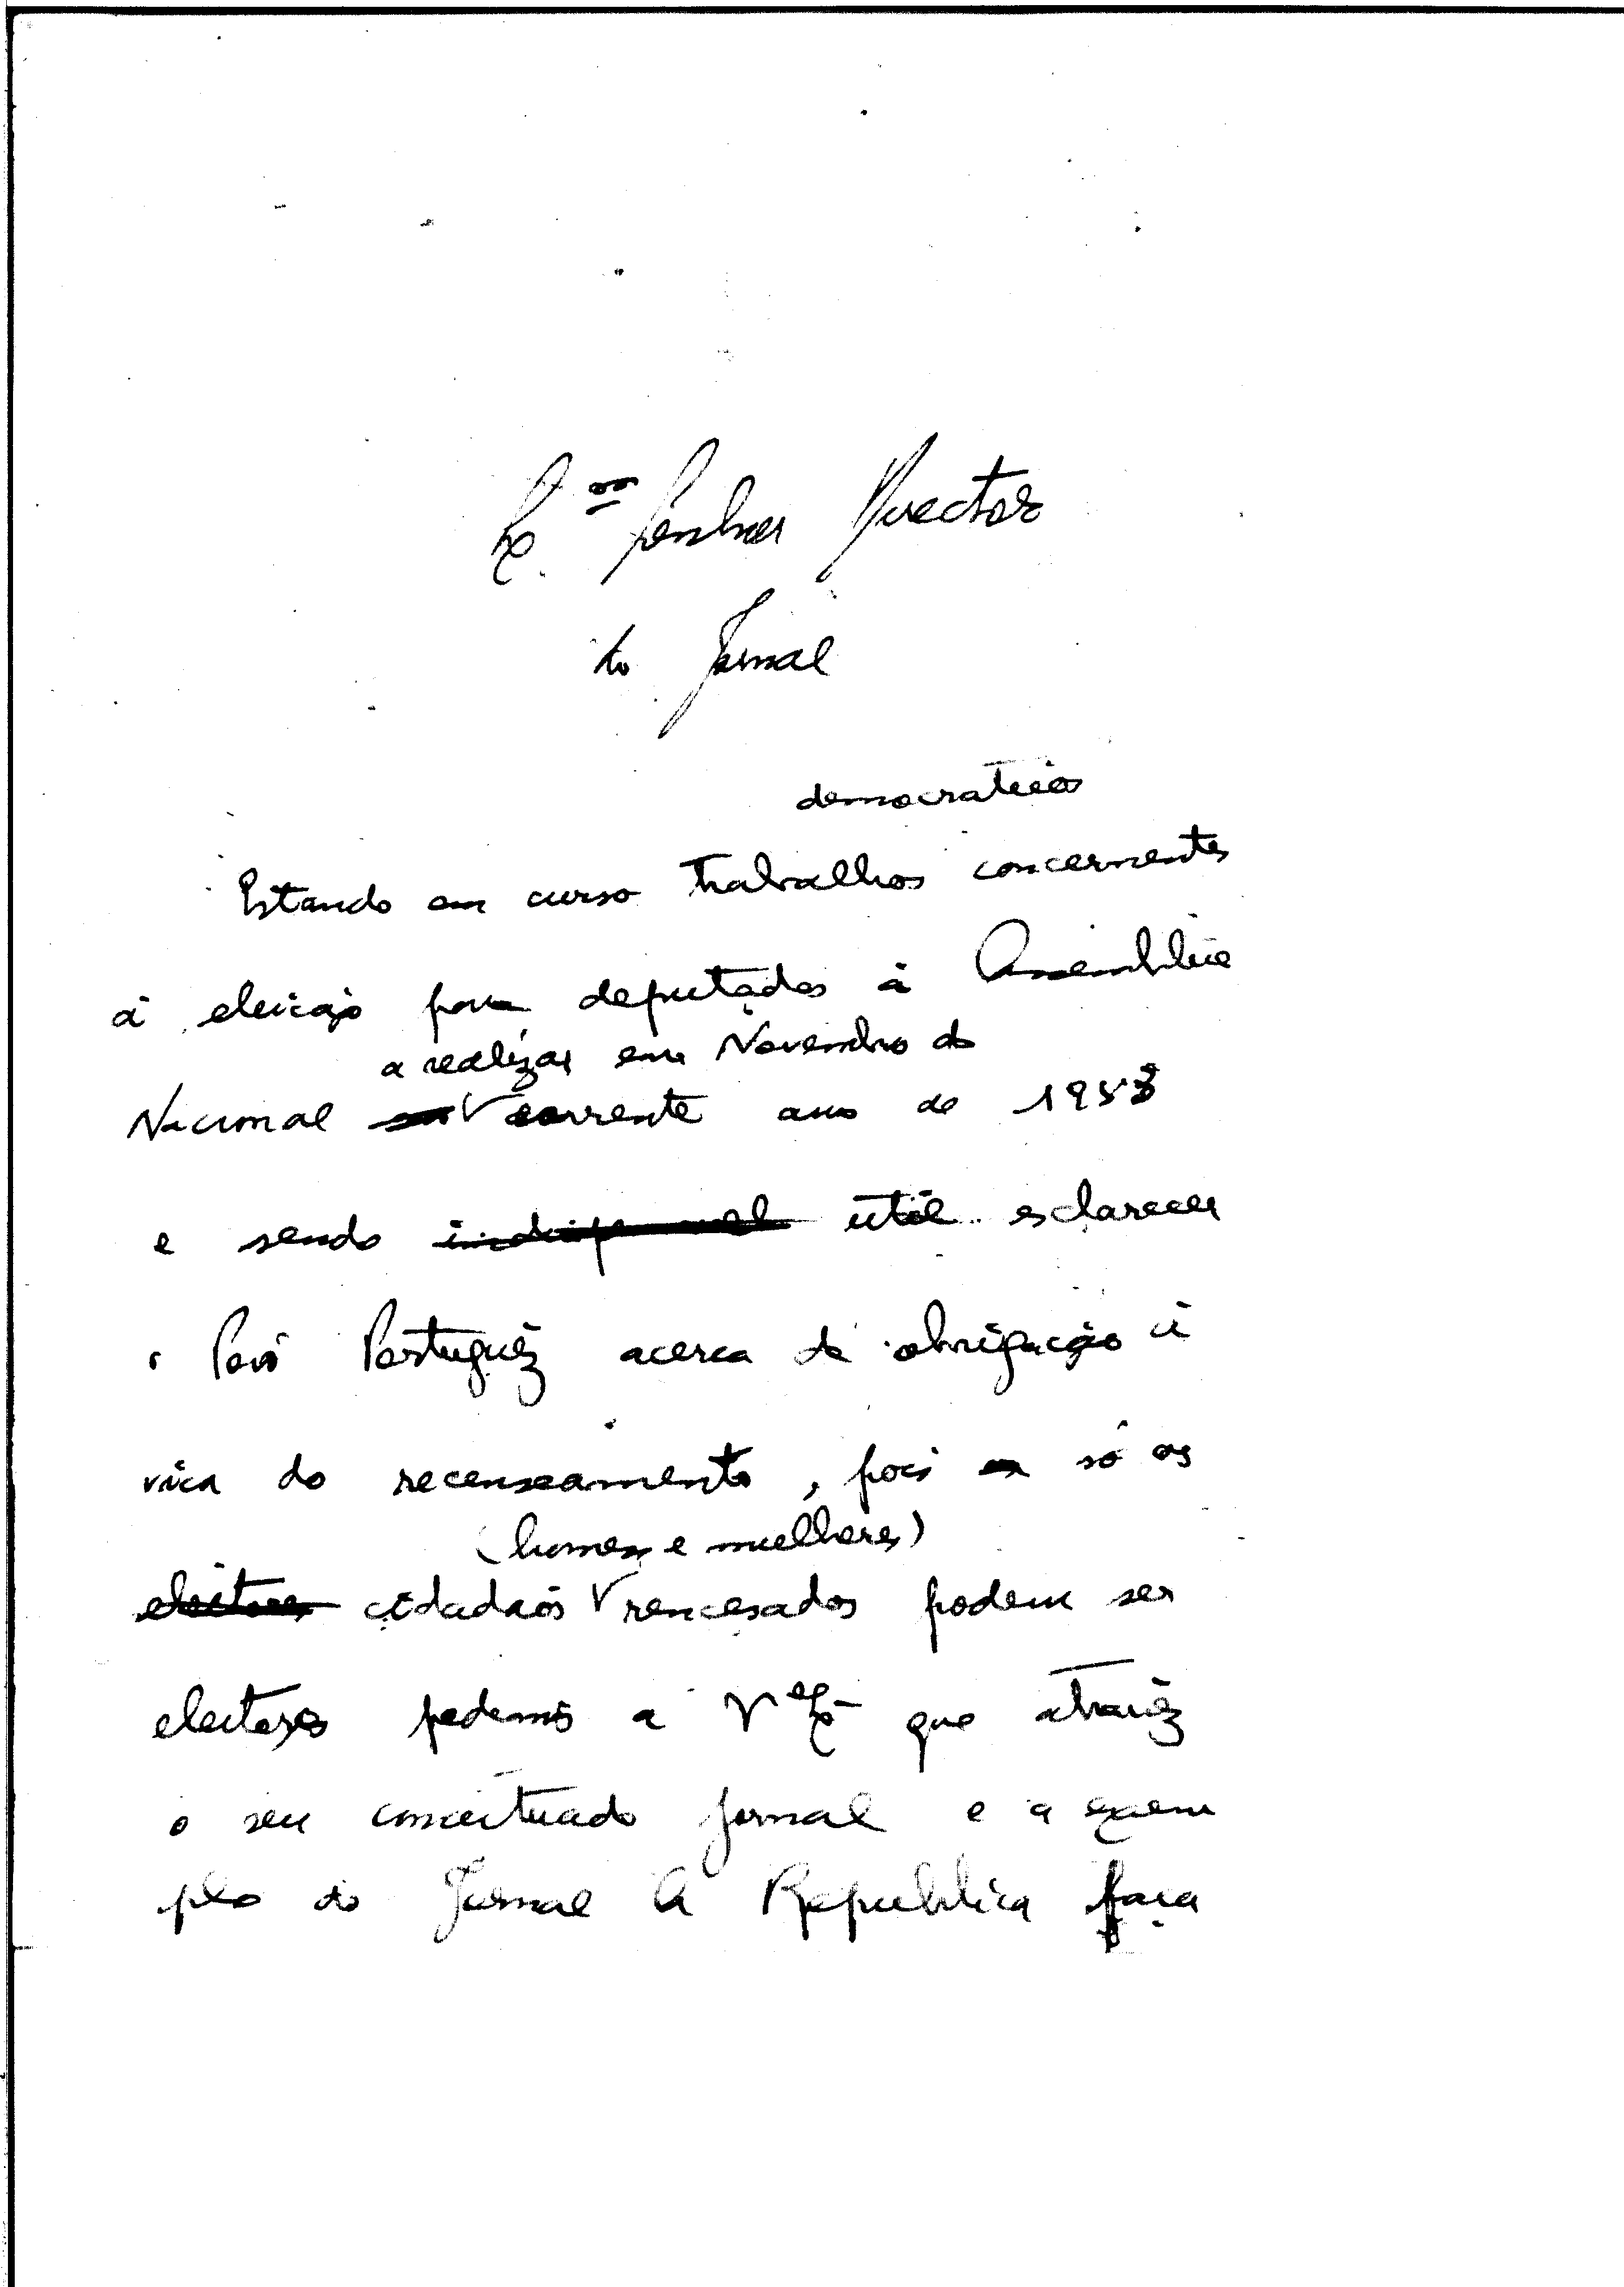 Ex.mo Senhor Director
do Jornal
democraticos
Estando em curso trabalhos concernentes
á eleição para deputados á Assembleia
a realizar em Novembro do
Nacional corrente ano de 1953
e sendo util esclarecer
o Povo Português acerca da obrigação ci
vica do recenseamento, pois só os
(homens e mulheres)
eleitores cidadãos rencesados podem ser
eleitores pedimos a V. Ex. que através
o seu conceituado jornal e a exem
plo do Jornal A Republica faça